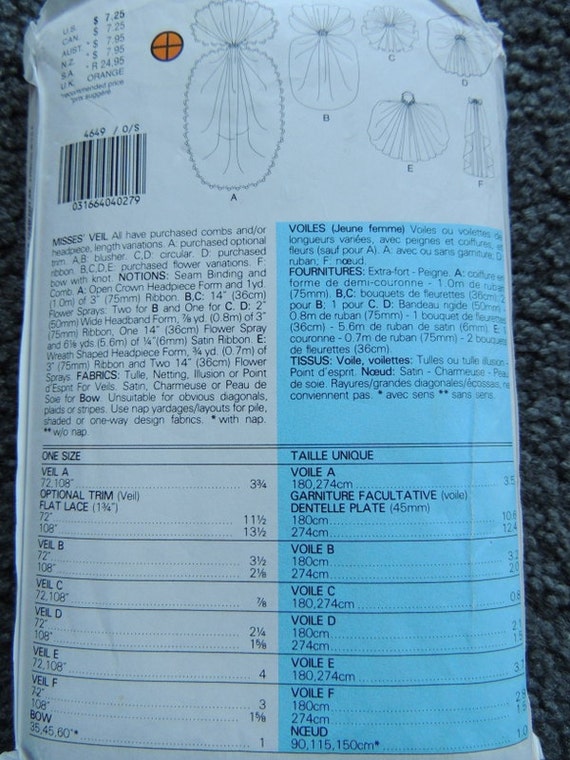 U.S. $ 7.25
CAN. $ 7.25
AUST. *$ 7.95
N.Z. *$ 7.95
S.A. *R 24.95
U.K. ORANGE
*recommended price
*prix suggéré
4649 / O/S
031664040279
A
B
C
D
E
F
MISSES' VEIL All have purchased combs and/or
headpiece, length variations. A: purchased optional
trim. A,B: blusher. C,D: circular. D: purchased
ribbon. B,C,D,E: purchased flower variations. F:
bow with knot. NOTIONS: Seam Binding and
Comb. A: Open Crown Headpiece Form and 1yd.
(1.0m) of 3" (75mm) Ribbon. B,C: 14" (36cm)
Flower Sprays: Two for B and One for C. D: 2"
(50mm) Wide Headband Form, ⅞ yd. (0.8m) of 3"
(75mm) Ribbon, One 14" (36cm) Flower Spray
and 6⅛ yds (5.6m) of ¼"(6mm) Satin Ribbon. E:
Wreath Shaped Headpiece Form, ¾ yd. (0.7m) of
3" (75mm) Ribbon and Two 14" (36cm) Flower
Sprays. FABRICS: Tulle, Netting, Illusion or Point
d'Esprit For Veils. Satin, Charmeuse or Peau de
Soie for Bow. Unsuitable for obvious diagonals,
plaids or stripes. Use nap yardages/layouts for pile,
shaded or one-way design fabrics. * with nap.
** w/o nap.
VOILES (Jeune femme) Voiles ou voilettes de
longueurs variées, avec peignes et coiffures, et
fleurs (sauf pour A). A: avec ou sans garniture; D:
ruban; F: nœud.
FOURNITURES: Extra-fort - Peigne. A: coiffure en
forme de demi-couronne - 1.0m de ruban
(75mm). B,C: bouquets de fleurettes (36cm), 2
pour B, 1 pour C. D: Bandeau rigide (50mm) -
0.8m de ruban (75mm) - 1 bouquet de fleurettes
(36cm) - 5.6m de ruban de satin (6mm). E:
couronne - 0.7m de ruban (75mm) - 2 bouquets
de fleurettes (36cm).
TISSUS: Voile, voilettes: Tulles ou tulle illusion -
Point d'esprit. Nœud: Satin - Charmeuse - Peau
de soie. Rayures/grandes diagonales/écossais, ne
conviennent pas. * avec sens ** sans sens.
ONE SIZE
VEIL A
72,108" 3¾
OPTIONAL TRIM (Veil)
FLAT LACE (1¾")
72" 11½
108" 13½
VEIL B
72" 3½
108" 2⅛
VEIL C
72,108" ⅞
VEIL D
72" 2¼
108" 1⅝
VEIL E
72,108" 4
VEIL F
72" 3
108" 1⅝
BOW
35,45,60"* 1
TAILLE UNIQUE
VOILE A
180,274cm 3.5
GARNITURE FACULTATIVE (voile)
DENTELLE PLATE (45mm)
180cm 10.6
274cm 12.4
VOILE B
180cm 3.2
274cm 2.0
VOILE C
180,274cm 0.8
VOILE D
180cm 2.1
274cm 1.5
VOILE E
180,274cm 3.7
VOILE F
180cm
274cm 1.5
NŒUD
90,115,150cm* 1.0